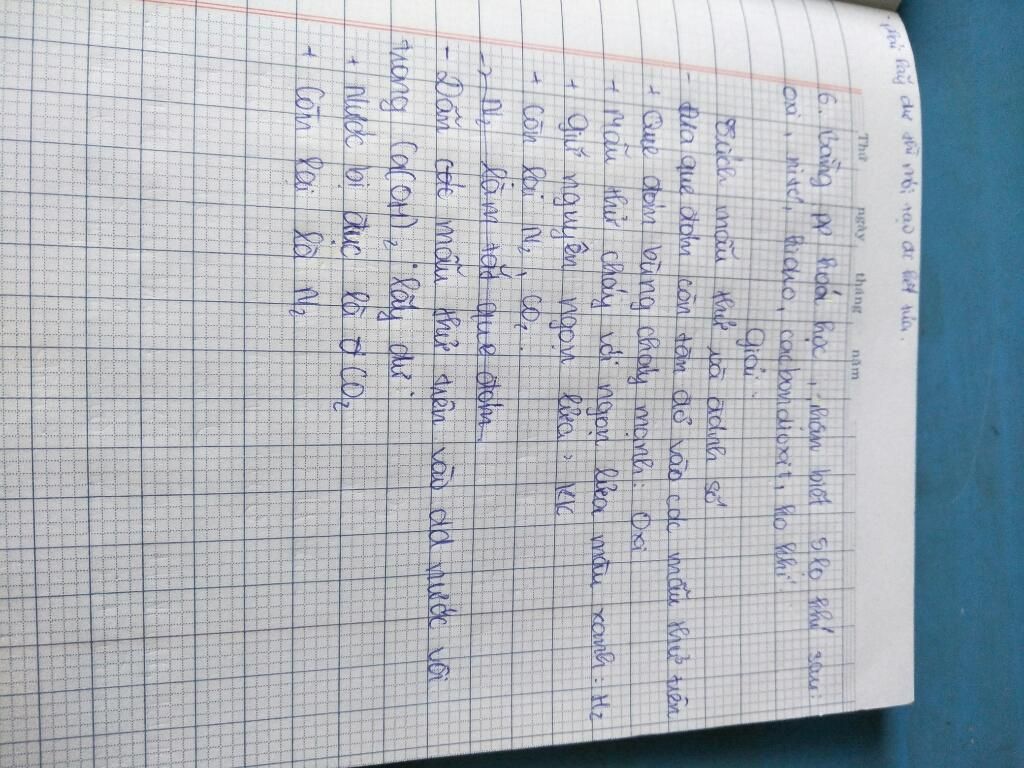 Thứ ngày tháng năm
6. Bằng pp hoá học, nhận biết 5 lọ khí sau
oxi, nitơ, hidro, cacbon dioxit, ko khí
Giải.
Trích mẫu thử và đánh số
- Đưa que đóm còn tàn đỏ vào các mẫu thử trên
+ Que đóm bùng cháy mạnh: Oxi
+ Mẫu thử cháy với ngọn lửa màu xanh: H2
+ Giữ nguyên ngọn lửa: KK
+ Còn lại N2, CO2.
-> N2 làm tắt que đóm
- Dẫn các mẫu thử trên vào dd nước vôi
trong Ca(OH)2 lấy dư
+ Nước bị đục là CO2
+ Còn lại là N2